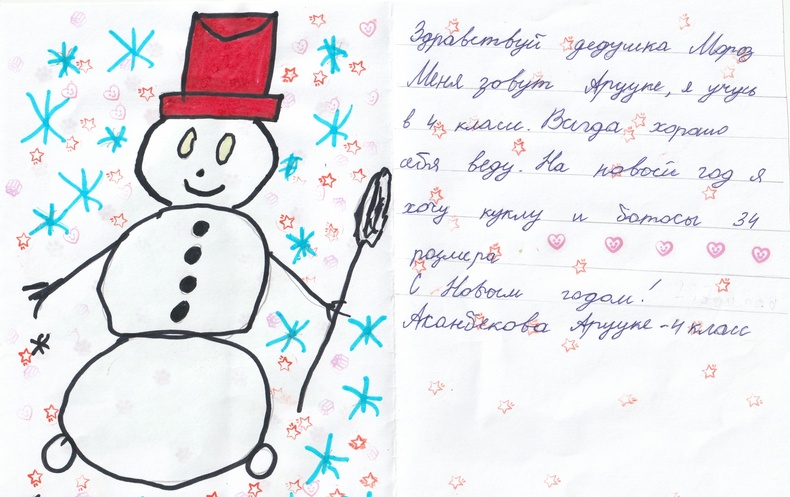 Здравствуй дедушка Мороз
Меня зовут Арууке, я учусь
в 4 класи. Всигда хорошо
себя веду. На новый год я
хочу куклу и ботосы 34
размера
С Новым годом!
Аканбекова Арууке - 4 класс